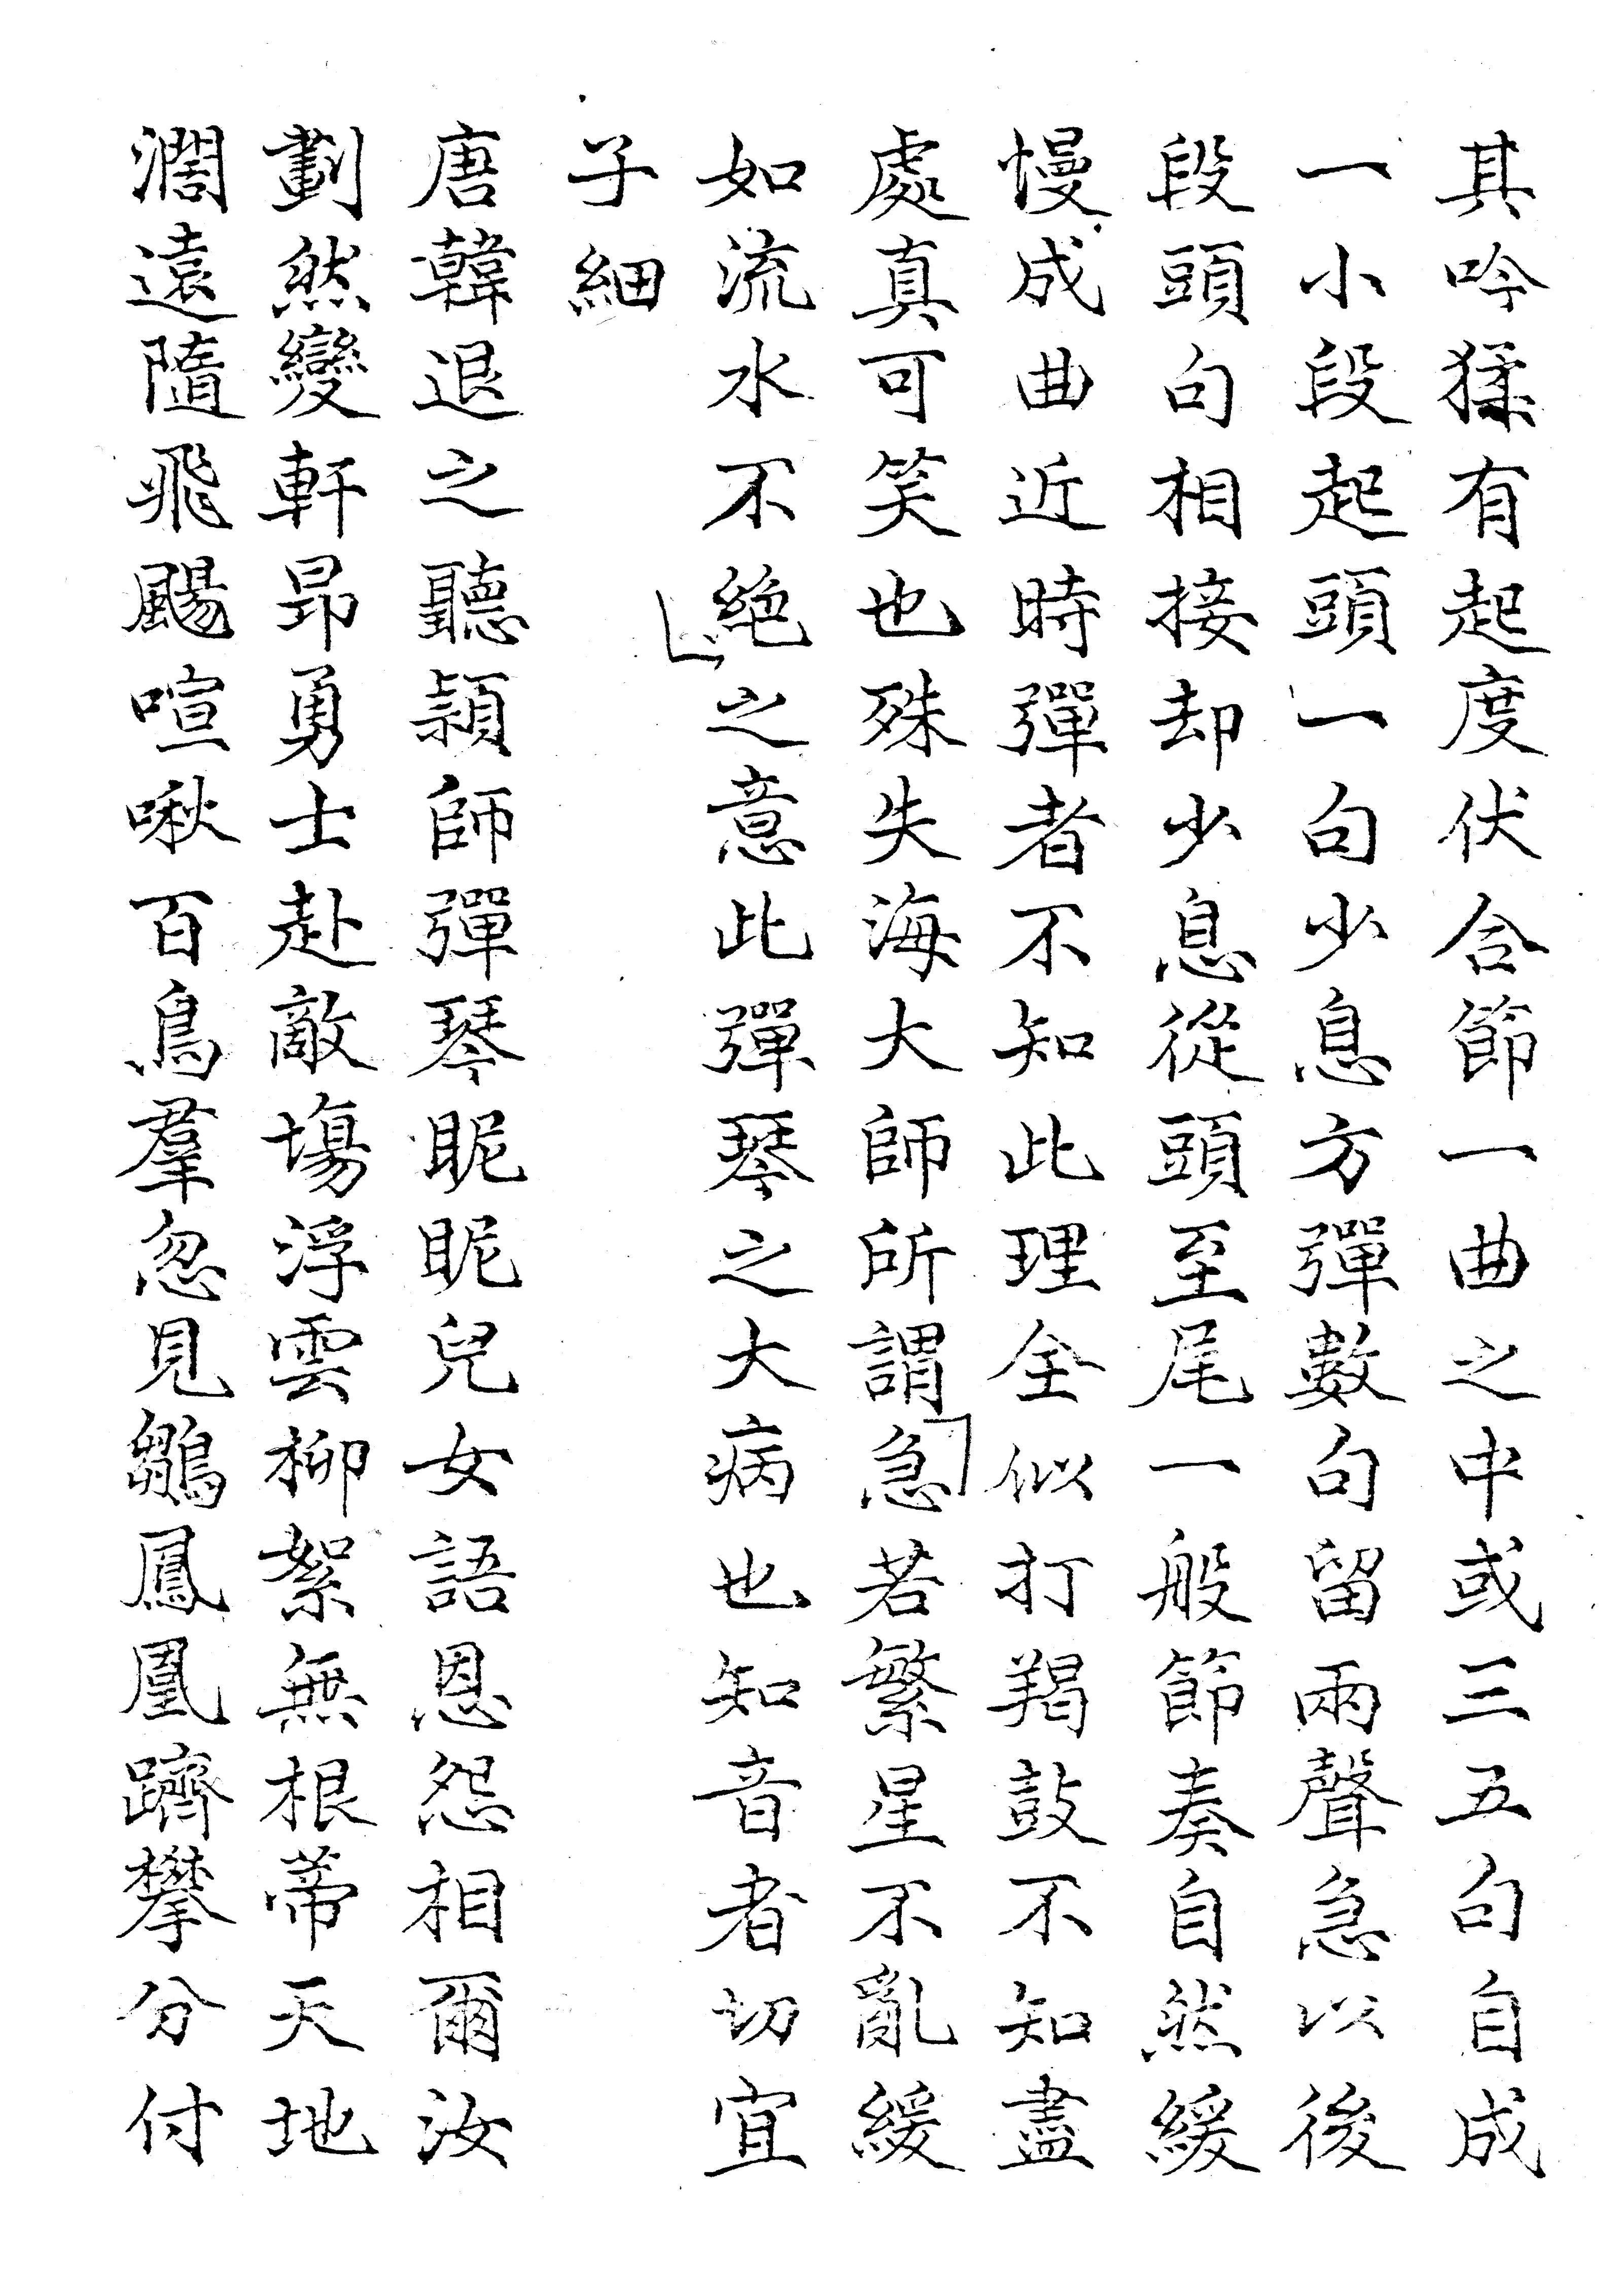 其吟猱有起度伏合節一曲之中或三五句自成
一小段起頭一句少息方彈數句留兩聲急以後
段頭句相接却少息從頭至尾一般節奏自然緩
慢成曲近時彈者不知此理全似打羯鼓不知盡
處真可笑也殊失海大師所謂急若繁星不亂緩
如流水不絕之意此彈琴之大病也知音者切宜
子細
唐韓退之聽潁師彈琴昵昵兒女語恩怨相爾汝
劃然變軒昂勇士赴敵塲浮雲柳絮無根蒂天地
濶遠隨飛颺喧啾百鳥羣忽見鶵鳳凰躋攀分付